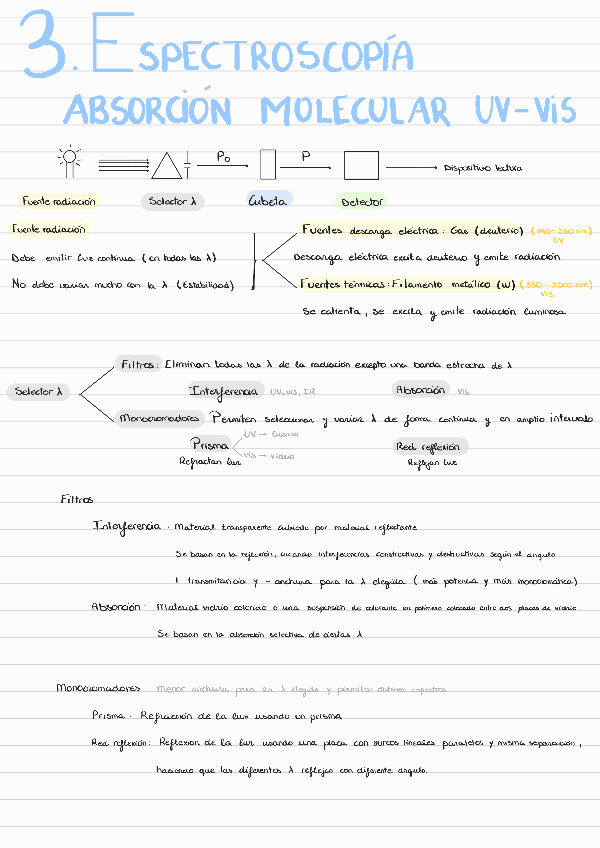 3. ESPECTROSCOPÍA
ABSORCIÓN MOLECULAR UV-Vis
P₀ P Dispositivo lectura
Fuente radiación Selector λ Cubeta Detector
Fuente radiación
Debe emitir luz continua (en todas las λ)
No debe variar mucho con la λ (Estabilidad)
Fuentes descarga eléctrica: Gas (deuterio) (190-380nm)
UV
Descarga eléctrica excita deuterio y emite radiación
Fuentes térmicas: Filamento metálico (W) (350-2500nm)
Vis
Se calienta, se excita y emite radiación luminosa
Selector λ
Filtros: Eliminan todas las λ de la radiación excepto una banda estrecha de λ
Interferencia UV, vis, IR Absorción Vis
Monocromadores Permiten seleccionar y variar λ de forma continua y en amplio intervalo
Prisma UV → Cuarzo
Vis → vidrio
Refractan luz
Red reflexión
Reflejan luz
Filtros
Interferencia. Material transparente cubierto por material reflectante
Se basan en la reflexión, creando interferencias constructivas y destructivas según el ángulo
transmitancia y - anchura para la λ elegida (más potencia y más monocromática)
Absorción: Material vidrio coloreado o una suspensión de colorante en polímero colocado entre dos placas de vidrio.
Se basan en la absorción selectiva de ciertas λ
Monocromadores Menor anchura para la λ elegida y permiten obtener espectros
Prisma. Refracción de la luz usando un prisma
Red reflexión: Reflexión de la luz usando una placa con surcos lineales paralelos y misma separación,
haciendo que las diferentes λ reflejen con diferente ángulo.